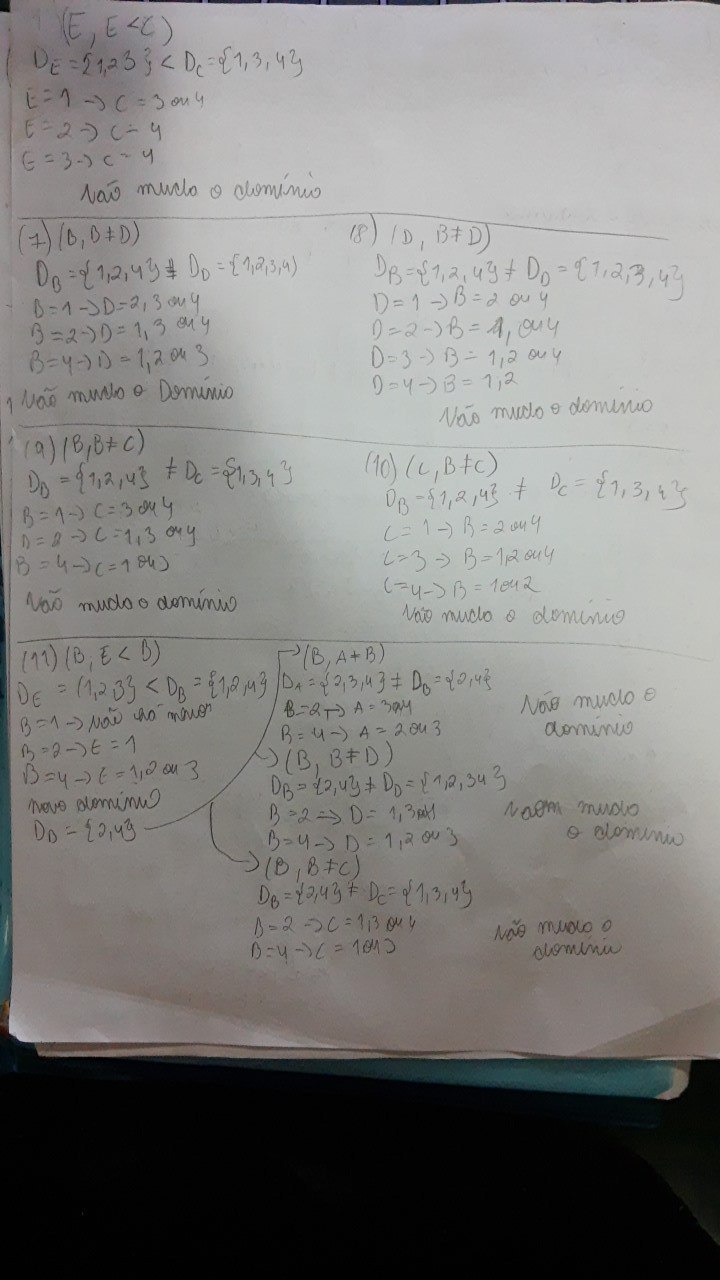 (E, E<C)
D_E = {1,2 3} < D_C = {1,3,4}
E=1 -> C = 3 ou 4
E=2 -> C = 4
E=3 -> C = 4
Não mudo o domínio
(7) (B, B≠D)
D_B = {1,2,4} ≠ D_D = {1,2,3,4)
B=1 -> D=2,3 ou 4
B=2 -> D=1,3 ou 4
B=4 -> D=1,2 ou 3
Não mudo o Domínio
(8) (D, B≠D)
D_B={1,2,4} ≠ D_D = {1,2,3,4}
D=1 -> B=2 ou 4
D=2 -> B=1, ou 4
D=3 -> B=1,2 ou 4
D=4 -> B=1,2
Não mudo o domínio
(9) (B, B≠C)
D_B = {1,2,4} ≠ D_C = {1,3,4}
B=1 -> C=3 ou 4
B=2 -> C=1,3 ou 4
B=4 -> C=1 ou 3
Não mudo o domínio
(10) (C, B≠C)
D_B={1,2,4} ≠ D_C = {1,3,4}
C=1 -> B=2 ou 4
C=3 -> B=1,2 ou 4
C=4 -> B=1 ou 2
Não mudo o domínio
(11) (B, E<B)
D_E = (1,2 3} < D_B = {1,2,4}
B=1 -> não há menor
B=2 -> E=1
B=4 -> E=1,2 ou 3
novo domínio
D_B = {2,4}
(B, A≠B)
D_A={2,3,4} ≠ D_B={2,4}
B=2 -> A=3 ou 4
B=4 -> A=2 ou 3
Não mudo o
domínio
(B, B≠D)
D_B={2,4} ≠ D_D={1,2,3 4}
B=2 -> D=1,3
B=4 -> D=1,2 ou 3
mudo
o domínio
(B, B≠C)
D_B={2,4} ≠ D_C={1,3,4}
B=2 -> C=1,3 ou 4
B=4 -> C=1 ou 3
Não mudo o
domínio